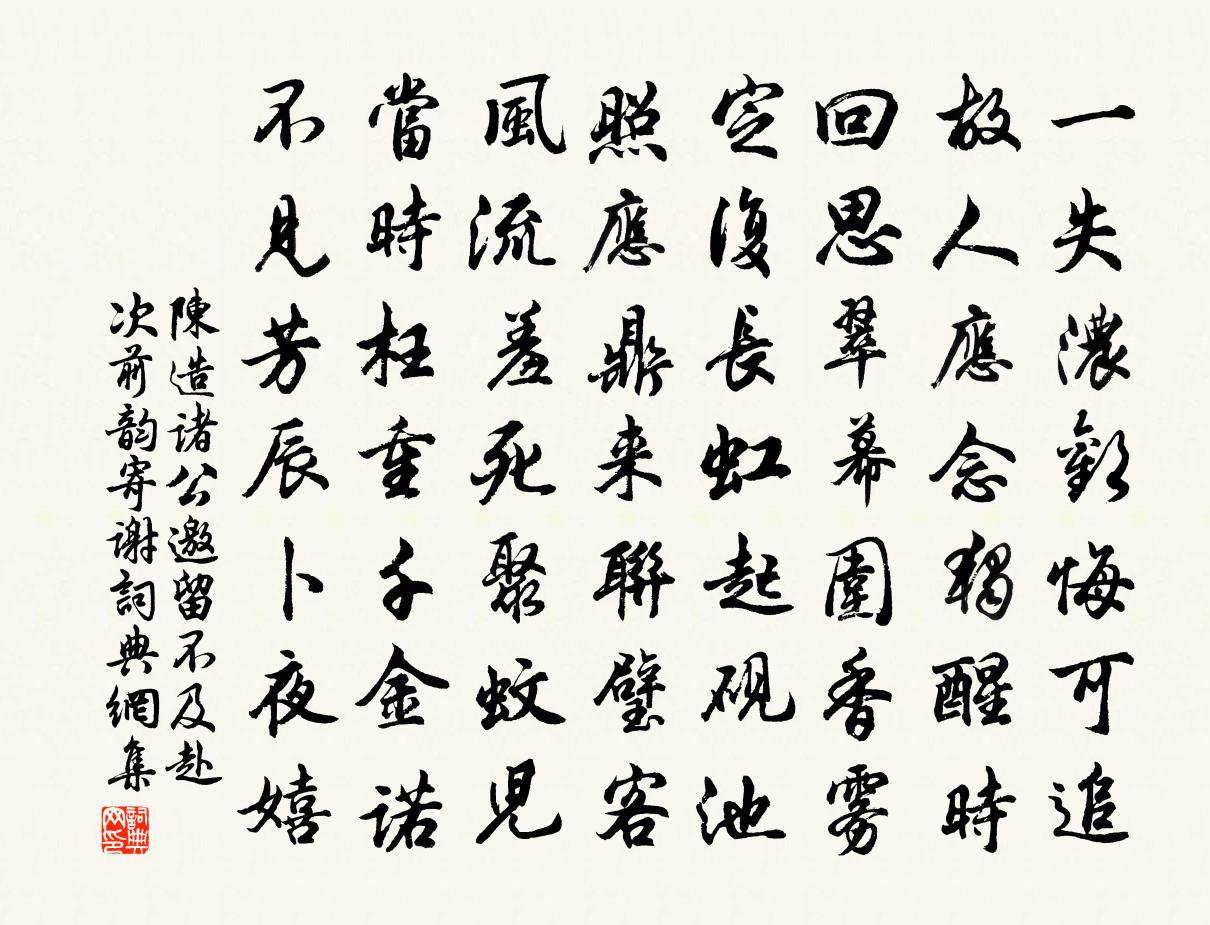 一失濃歡悔可追
故人應念獨醒時
回思翠幕圍香霧
定復長虹起硯池
照應鼎来聯璧客
風流羞死聚蚊兒
當時枉重千金諾
不見芳辰卜夜嬉
陳造諸公邀留不及赴
次前韵寄謝詞典網集
詞典
网印